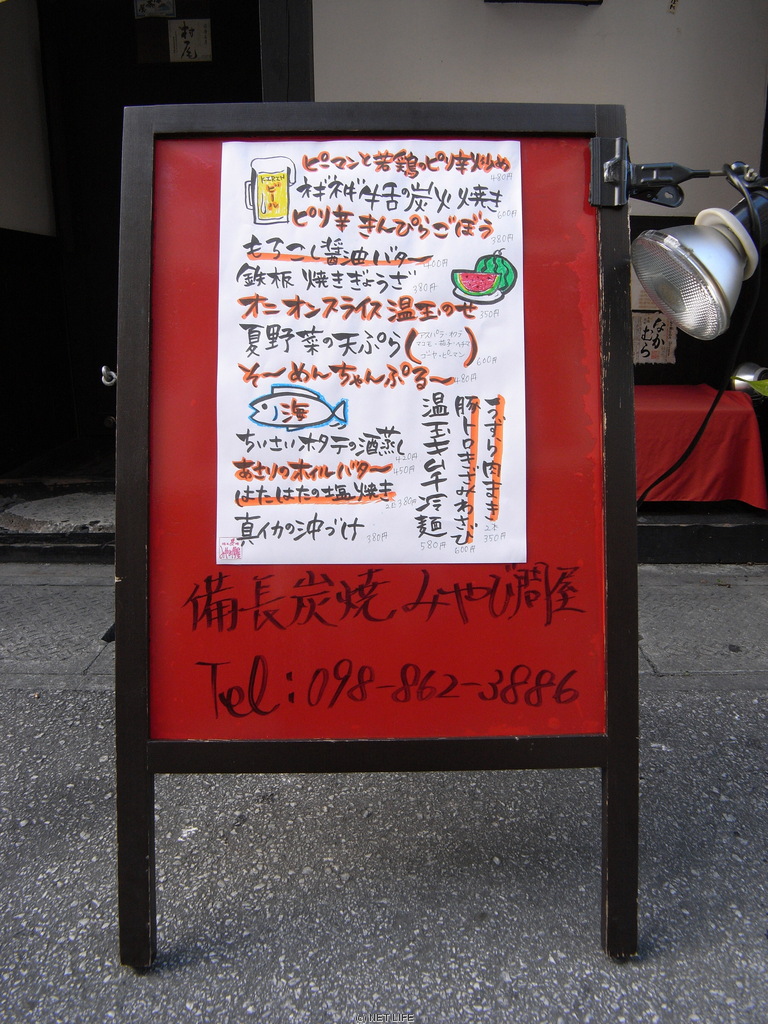 ビール
ピーマンと若鶏のピリ辛炒め
480円
ネギネギ牛舌の炭火焼き
600円
ピリ辛きんぴらごぼう
380円
もろこし醤油バター
400円
鉄板焼きぎょうざ
380円
オニオンスライス温玉のせ
350円
夏野菜の天ぷら
(アスパラ・オクラ
ゴーヤーピーマン)
600円
そーめんちゃんぷるー
480円
海
ちいさいホタテの酒蒸し
420円
あさりのオイルバター
450円
はたはたの塩焼き
2本380円
真イカの沖づけ
380円
うずら肉まき
2本
350円
豚トロきざみわさび
600円
温玉キムチ冷麺
580円
備長炭焼みやび問屋
Tel:098-862-3886
村尾
なかむら
© NET LIFE